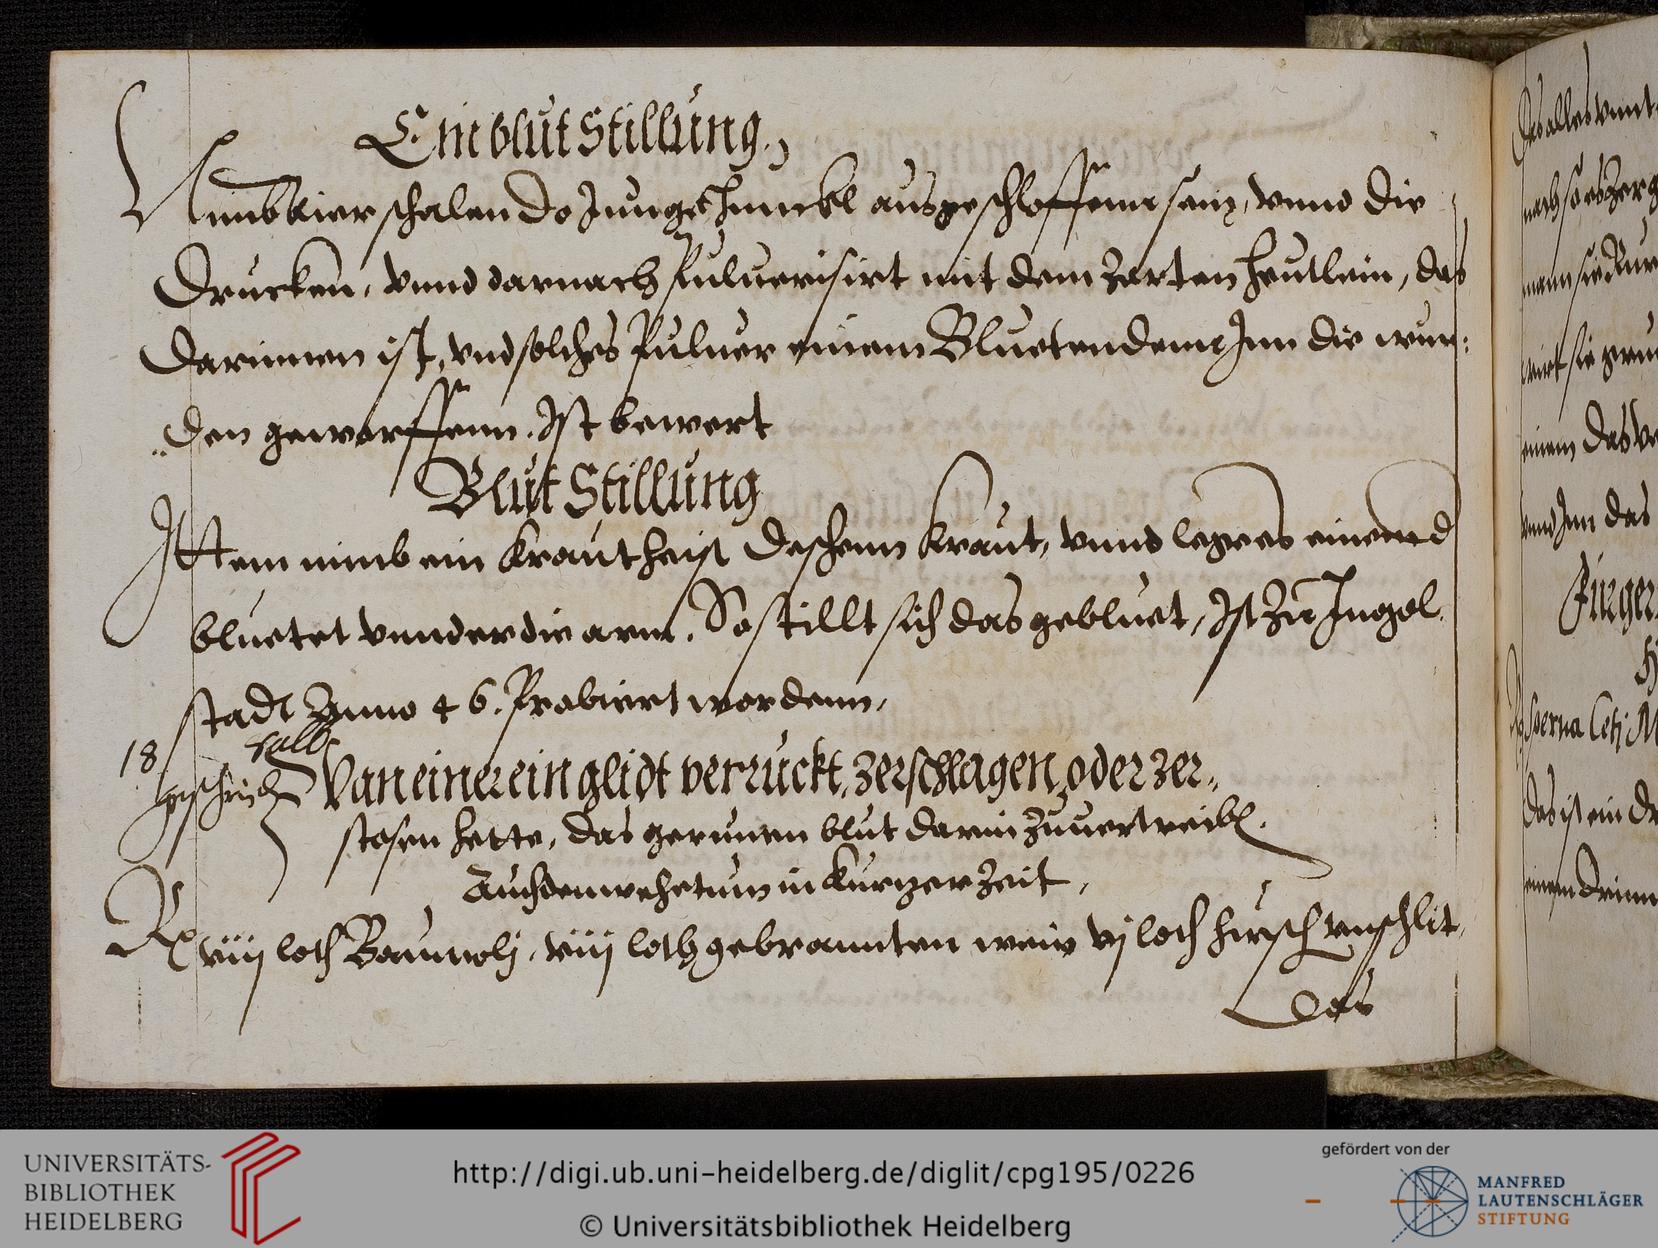 Ein blut Stillung,
Nimb Aier schalen do Junge Hinckl ausgeschloffenn sein, vnnd die
Drucken, vnnd darnach Puluerisirt mit dem zarten heutlein, das
darinnen ist, vnd solches Puluer einem Bluetendenn Inn die wun:
den geworffenn. Ist bewert
Blut Stillung
Ittem nimb ein Kraut heist Deschenn Kraut, vnnd leges einem d
bluetet vnnder die arm. So stillt sich das gebluet, Ist Zu Ingol
stadt Anno 46. Probiert wordenn,
18 salb
geschrieb Wan einer ein glidt verruckt, zerschlagen, oder zer,
stosen hette, das gerunnen blut darin zuuertreibe.
Auch den wehetum in kurtzer Zeit,
Rx viij loth Baumolj, viij loth gebrannten wein vj loth hirsch vnschlit,
Das
Das alles vnnt
nach so es
mann sie
einem das
vnnd Inn das
Sperma Cetj
das ist ein
einem
UNIVERSITÄTS-
BIBLIOTHEK
HEIDELBERG
http://digi.ub.uni-heidelberg.de/diglit/cpg195/0226
© Universitätsbibliothek Heidelberg
gefördert von der
MANFRED
LAUTENSCHLÄGER
STIFTUNG